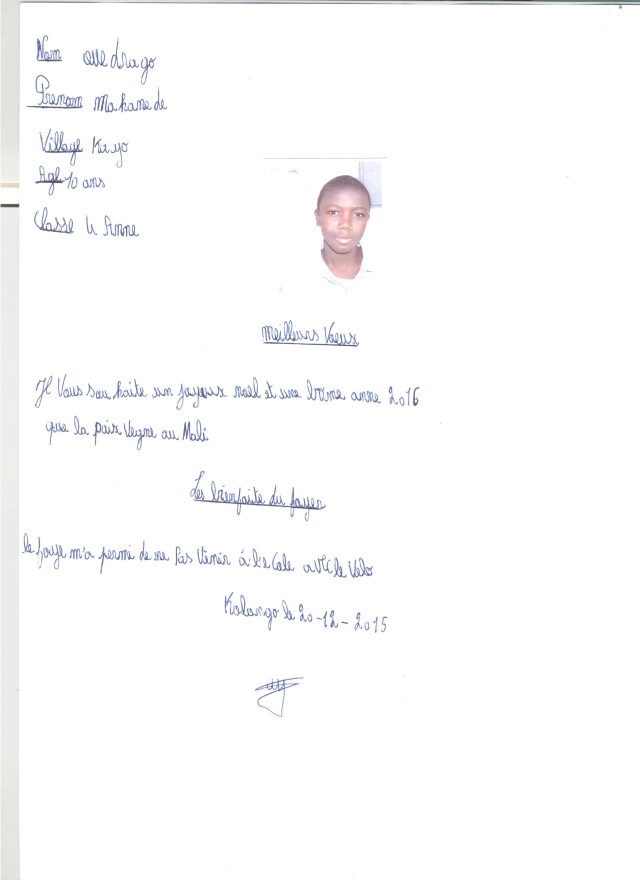 Nom ouedrago
Prenom Mahamede
Village Kuyo
Age 10 ans
Classe 4 Anne
Meilleurs Vœux
Je Vous souhaite un joyeux noel et une bonne anne 2016
que la paix Vegne au Mali
Les bienfaite du foyer
le foye m'a permi de ne Pas Venir à l'ecole avec le Velo
Kolango le 20-12-2015